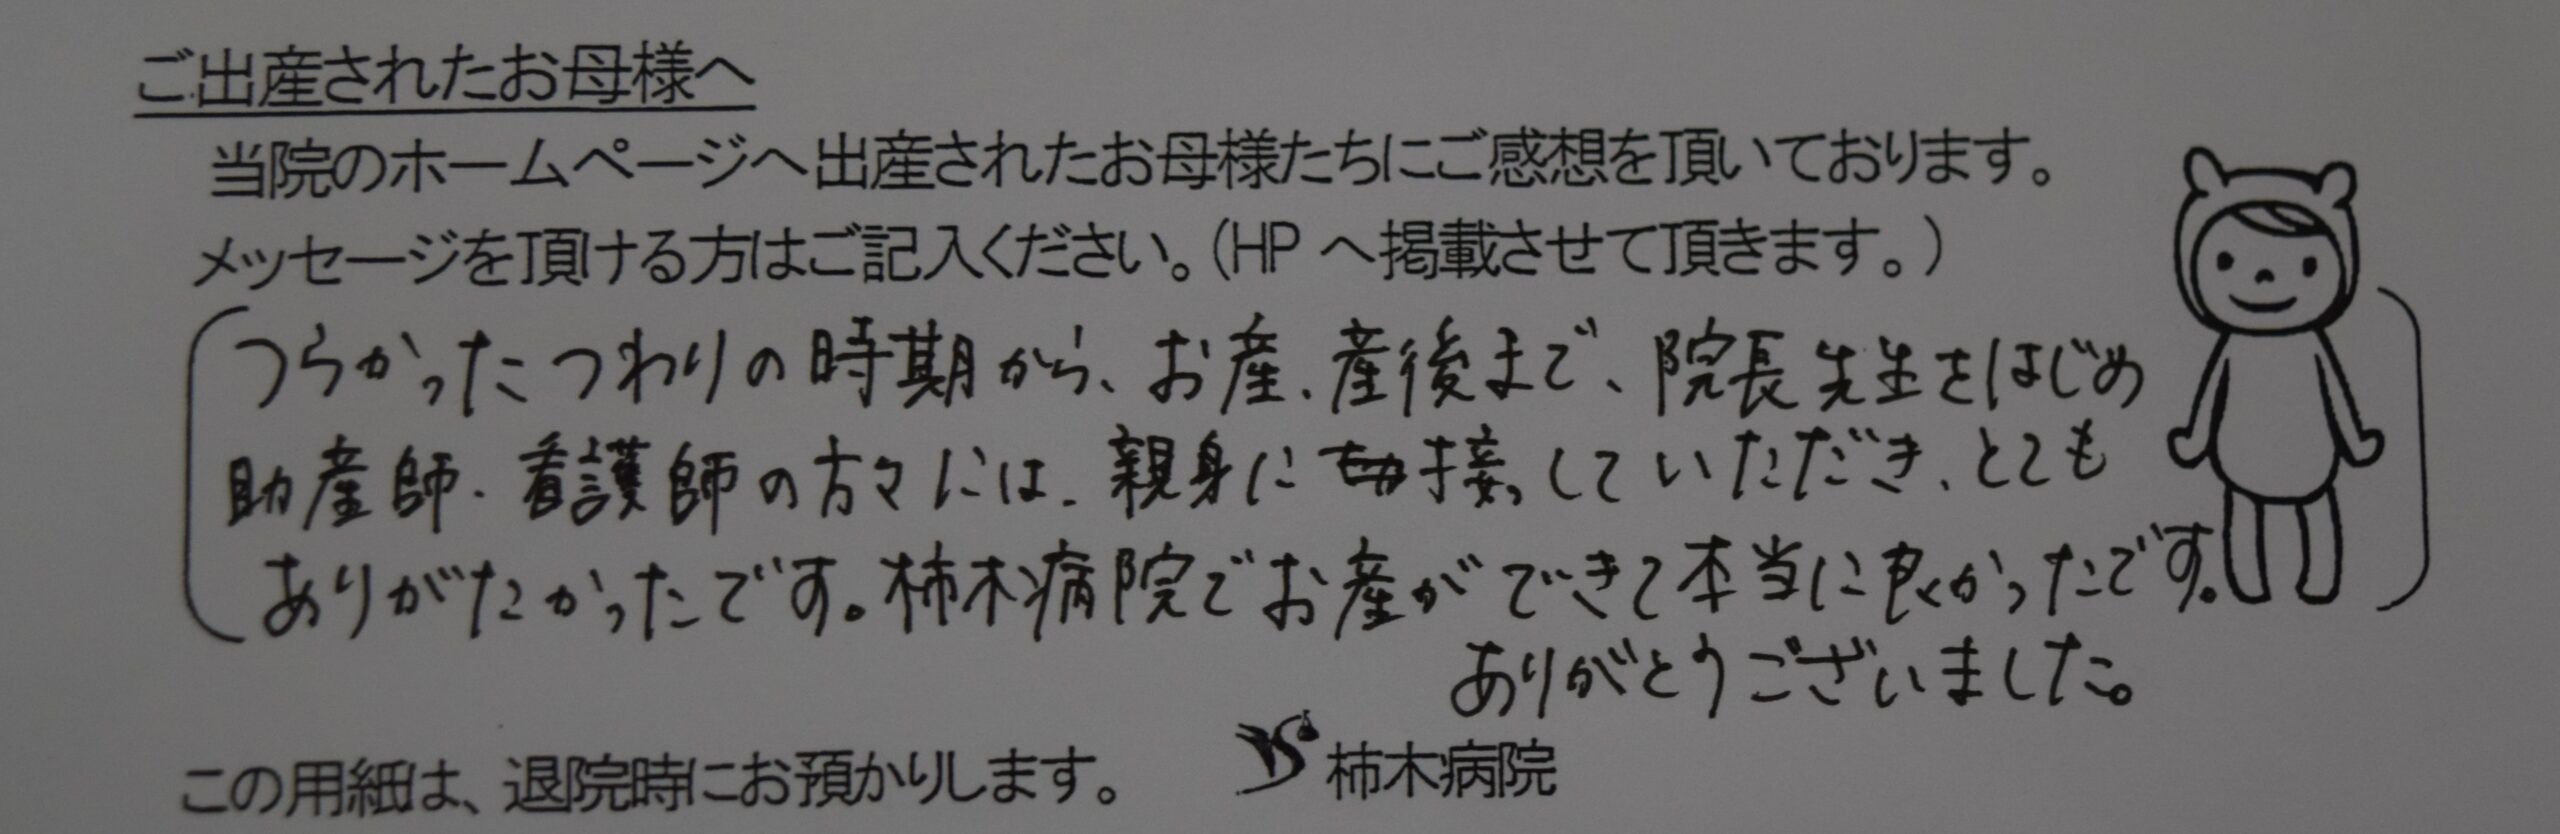 ご出産されたお母様へ
当院のホームページへ出産されたお母様たちにご感想を頂いております。
メッセージを頂ける方はご記入ください。（HP へ掲載させて頂きます。）
つらかったつわりの時期から、お産、産後まで、院長先生をはじめ
助産師、看護師の方々には、親身に接っしていただき、とても
ありがたかったです。柿木病院でお産ができて本当に良かったです。
ありがとうございました。
この用紙は、退院時にお預かりします。 柿木病院